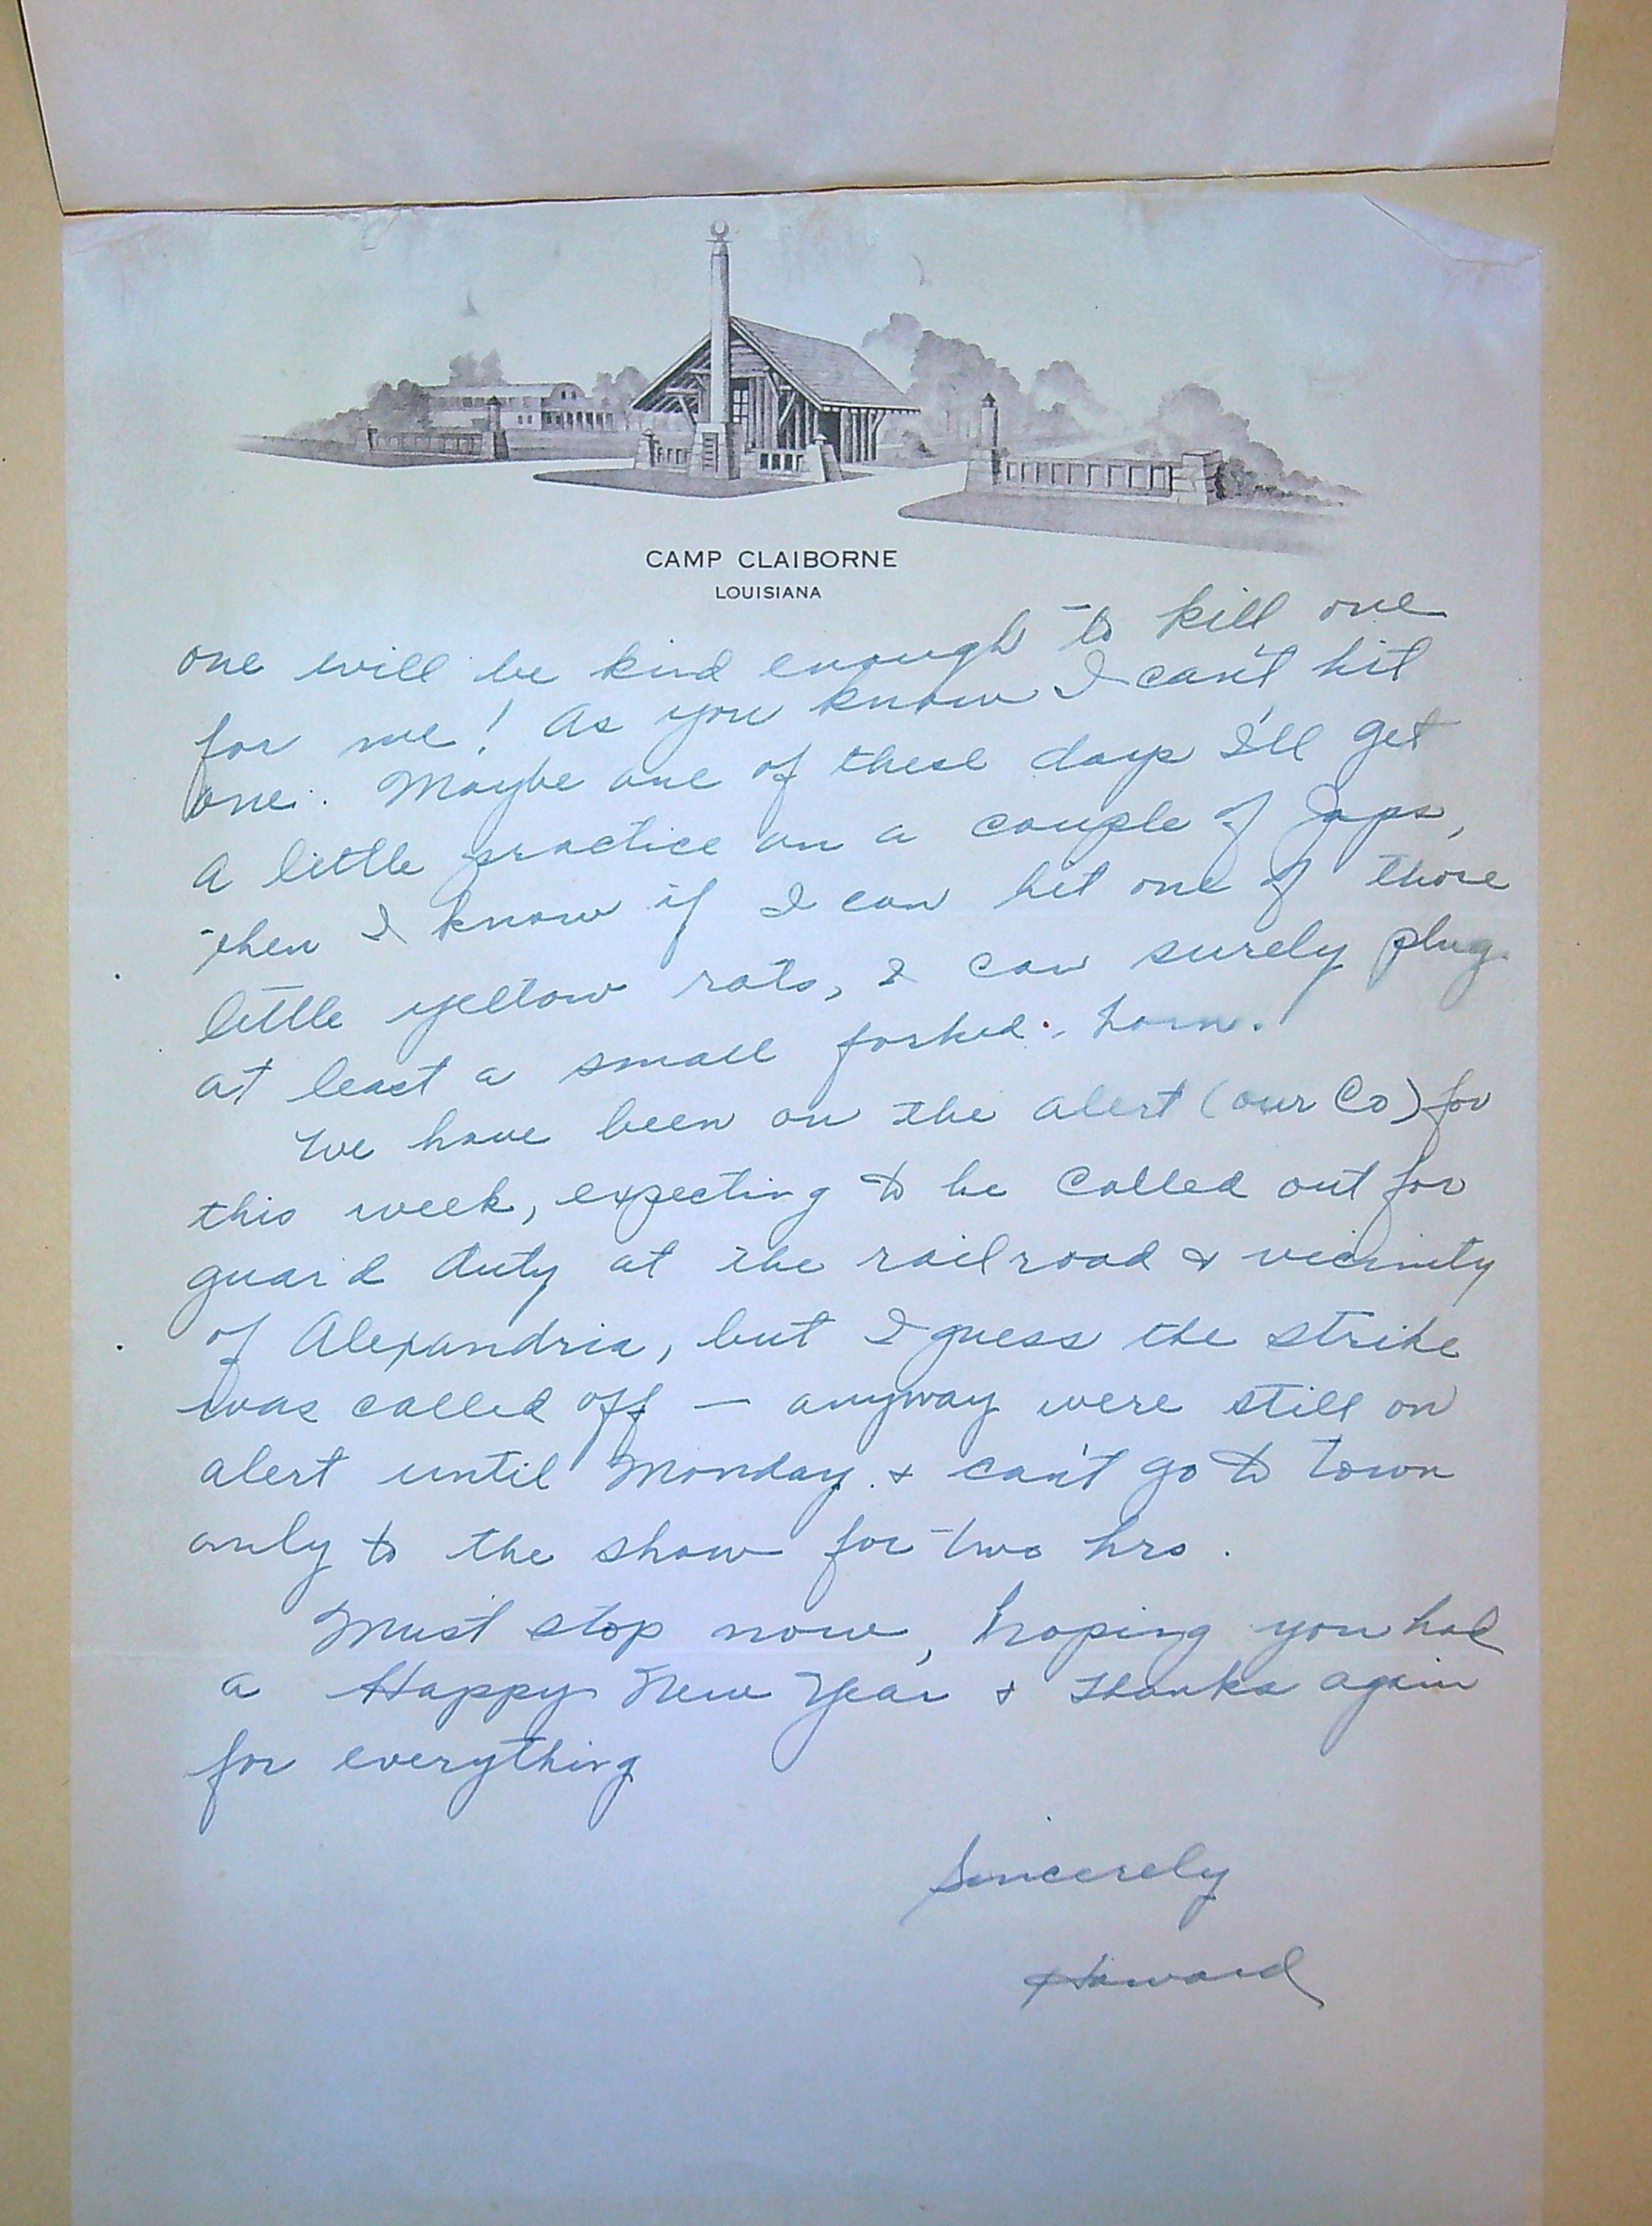 CAMP CLAIBORNE
LOUISIANA
one will be kind enough to kill one
for me! As you know I can't hit
one. Maybe one of these days I'll get
a little practice on a couple of Japs,
then I know if I can hit one of those
little yellow rats, I can surely plug
at least a small forked horn.
We have been on the alert (our Co) for
this week, expecting to be called out for
guard duty at the railroad & vicinity
of Alexandria, but I guess the strike
was called off — anyway were still on
alert until Monday & can't go to town
only to the show for two hrs.
Must stop now, hoping you had
a Happy New Year & thanks again
for everything
Sincerely
Howard